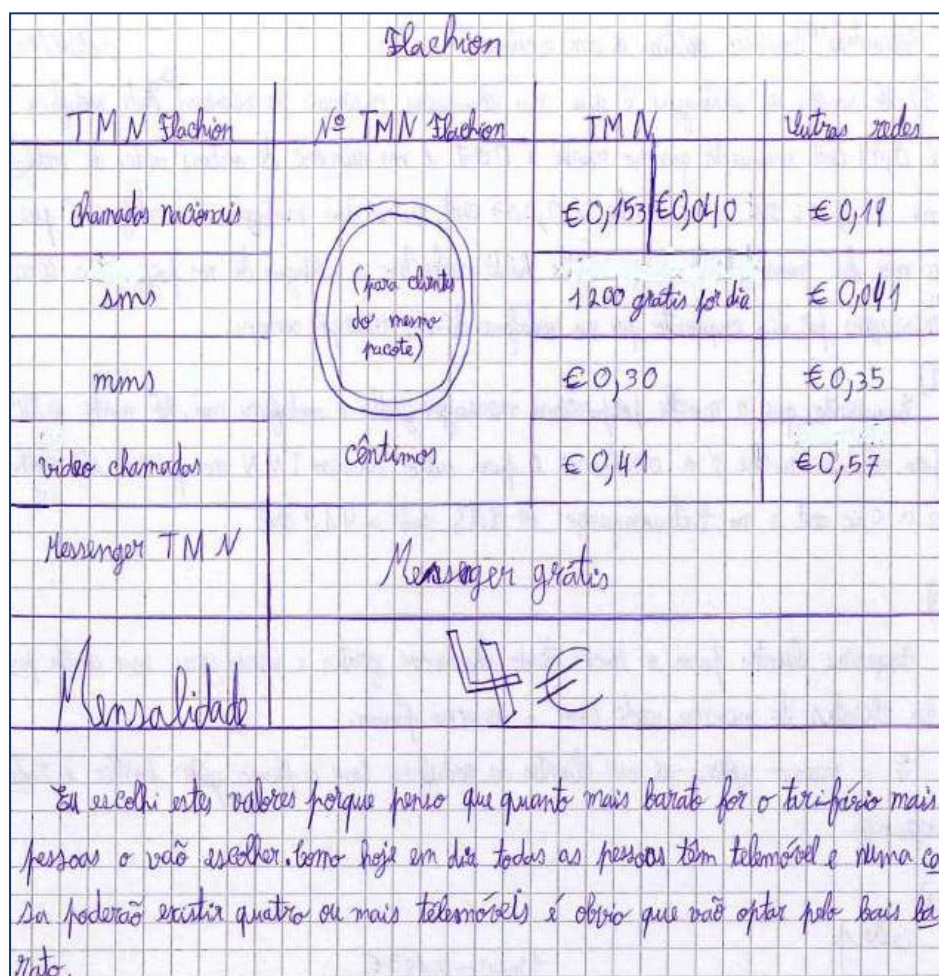 Flachion
TMN Flachion Nº TMN Flachion TMN Outras redes
chamadas nacionais €0,153 €0,040 €0,19
sms 1200 grátis por dia €0,041
(para clientes
do mesmo
pacote)
mms €0,30 €0,35
video chamadas cêntimos €0,41 €0,57
Messenger TMN Mensseger grátis
Mensalidade 4 €
Eu escolhi estes valores porque penso que quanto mais barato for o tarifário mais
pessoas o vão escolher. Como hoje em dia todas as pessoas têm telemóvel e numa ca
sa poderão existir quatro ou mais telemóvels é obvio que vão optar pelo bais ba
rato.